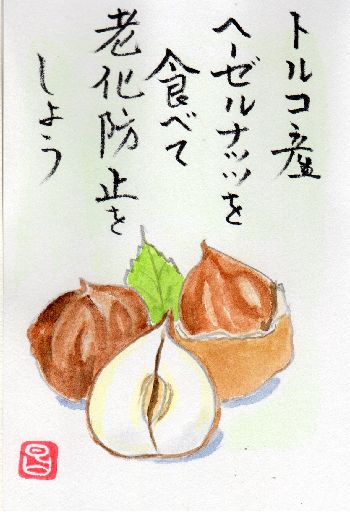 トルコ産
ヘーゼルナッツを
食べて
老化防止を
しょう